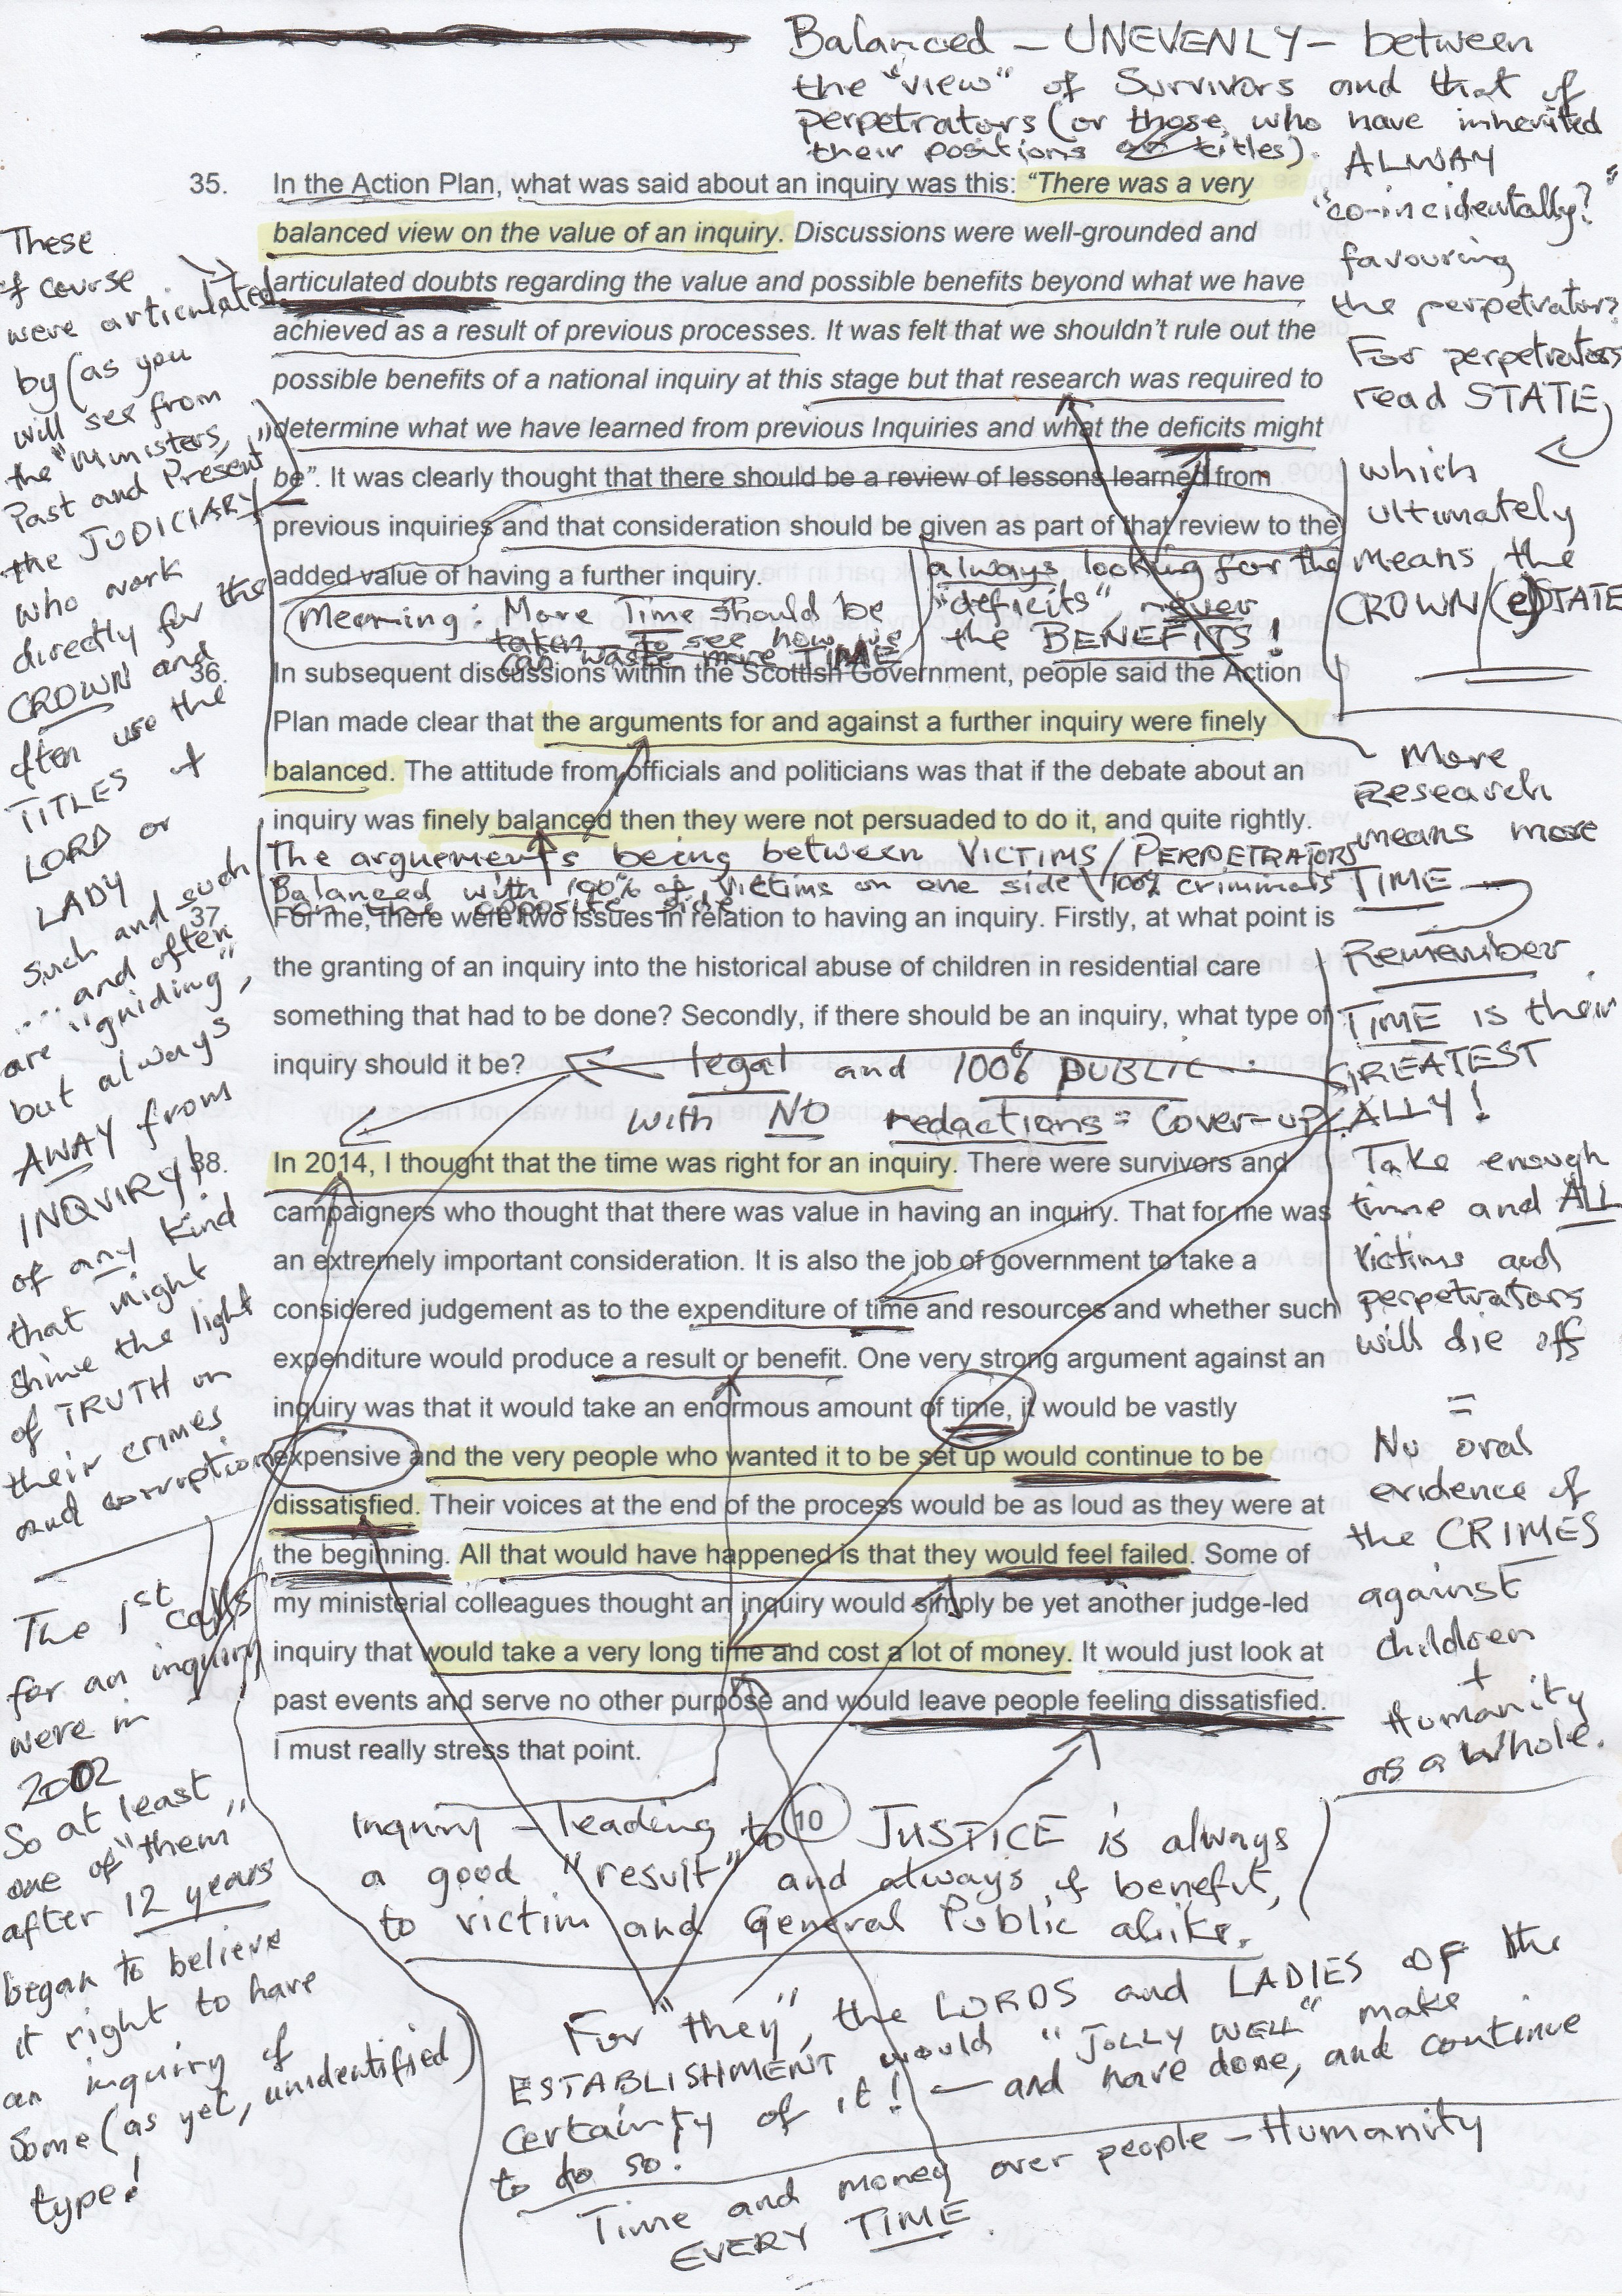 Balanced – UNEVENLY – between
the "view" of Survivors and that of
perpetrators (or those who have inherited
their positions or titles).
ALWAY
"co-incidentally?"
favouring
the perpetrators.
For perpetrators
read STATE,
which
ultimately
means the
CROWN/(e)STATE
These
of course
were articulated
by (as you
will see from
the "Ministers,
Past and Present"
the JUDICIARY
who work
directly for the
CROWN and
often use the
TITLES of
LORD or
LADY
such and such
.... and often
are "guiding",
but always
AWAY from
INQUIRY!
of any kind
that might
shine the light
of TRUTH on
their crimes
and corruption
35. In the Action Plan, what was said about an inquiry was this: “There was a very
balanced view on the value of an inquiry. Discussions were well-grounded and
articulated doubts regarding the value and possible benefits beyond what we have
achieved as a result of previous processes. It was felt that we shouldn’t rule out the
possible benefits of a national inquiry at this stage but that research was required to
determine what we have learned from previous Inquiries and what the deficits might
be”. It was clearly thought that there should be a review of lessons learned from
previous inquiries and that consideration should be given as part of that review to the
added value of having a further inquiry.
Meaning: More Time should be
taken to see how we
can waste more TIME
always looking for the
"deficits" never
the BENEFITS!
36. In subsequent discussions within the Scottish Government, people said the Action
Plan made clear that the arguments for and against a further inquiry were finely
balanced. The attitude from officials and politicians was that if the debate about an
inquiry was finely balanced then they were not persuaded to do it, and quite rightly.
The arguements being between VICTIMS/PERPETRATORS
Balanced with 100% of Victims on one side \ 100% criminals
on the opposite side
37. For me, there were two issues in relation to having an inquiry. Firstly, at what point is
the granting of an inquiry into the historical abuse of children in residential care
something that had to be done? Secondly, if there should be an inquiry, what type of
inquiry should it be?
legal and 100% PUBLIC
with NO redactions = Cover-up
38. In 2014, I thought that the time was right for an inquiry. There were survivors and
campaigners who thought that there was value in having an inquiry. That for me was
an extremely important consideration. It is also the job of government to take a
considered judgement as to the expenditure of time and resources and whether such
expenditure would produce a result or benefit. One very strong argument against an
inquiry was that it would take an enormous amount of time, it would be vastly
expensive and the very people who wanted it to be set up would continue to be
dissatisfied. Their voices at the end of the process would be as loud as they were at
the beginning. All that would have happened is that they would feel failed. Some of
my ministerial colleagues thought an inquiry would simply be yet another judge-led
inquiry that would take a very long time and cost a lot of money. It would just look at
past events and serve no other purpose and would leave people feeling dissatisfied.
I must really stress that point.
More
Research
means more
TIME
Remember
TIME is their
GREATEST
ALLY!
Take enough
time and ALL
Victims and
perpetrators
will die off
=
No oral
evidence of
the CRIMES
against
children
+
Humanity
as a whole.
The 1st calls
for an inquiry
were in
2002
So at least
one of "them"
after 12 years
began to believe
it right to have
an inquiry of
some (as yet, unidentified)
type!
10
Inquiry – leading to JUSTICE is always
a good "result" and always of benefit,
to victim and General Public alike.
For "they", the LORDS and LADIES OF the
ESTABLISHMENT would "JOLLY WELL" make
certainty of it! – and have done, and continue
to do so!
Time and money over people – Humanity
EVERY TIME.